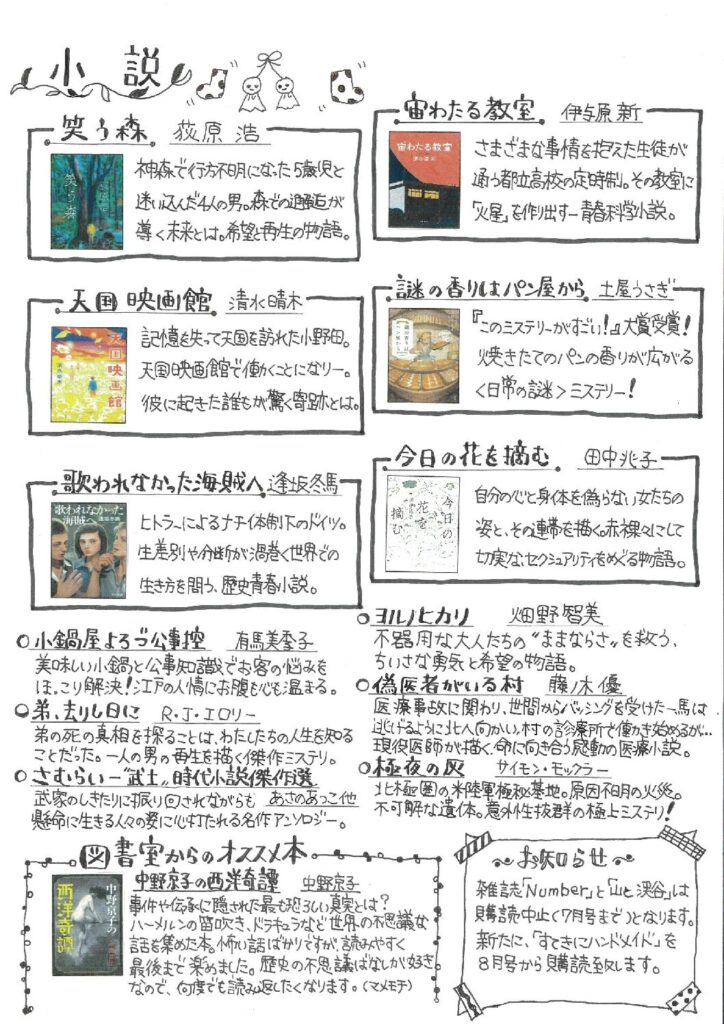 小説
笑う森 荻原浩
神森で行方不明になった5歳児と
迷い込んだ4人の男。森での邂逅が
導く未来とは。希望と再生の物語。
天国映画館 清水晴木
記憶を失って天国を訪れた小野田。
天国映画館で働くことになり―。
彼に起きた誰もが驚く奇跡とは。
歌われなかった海賊へ 逢坂冬馬
ヒトラーによるナチ体制下のドイツ。
生差別や分断が渦巻く世界での
生き方を問う、歴史青春小説。
小鍋屋よろづ公事控 有馬美季子
美味しい小鍋と公事知識でお客の悩みを
ほっこり解決!江戸の人情にお腹も心も温まる。
弟、去りし日に R・J・エロリー
弟の死の真相を探ることは、わたしたちの人生を知る
ことだった。一人の男の再生を描く傑作ミステリ。
さむらい―“武士”時代小説傑作選
武家のしきたりに振り回されながらも あさのあつこ他
懸命に生きる人々の姿に心打たれる名作アンソロジー。
宙わたる教室 伊与原新
さまざまな事情を抱えた生徒が
通う都立高校の定時制。その教室に
「火星」を作り出す―青春科学小説。
謎の香りはパン屋から 土屋うさぎ
『このミステリーがすごい!』大賞受賞!
焼きたてのパンの香りが広がる
<日常の謎>ミステリー!
今日の花を摘む 田中兆子
自分の心と身体を偽らない女たちの
姿と、その連帯を描く。赤裸々にして
切実な、セクシュアリティをめぐる物語。
ヨルノヒカリ 畑野智美
不器用な大人たちの“ままならさ”を救う、
ちいさな勇気と希望の物語。
偽医者がいる村 藤ノ木優
医療事故に関わり、世間からバッシングを受けた一馬は
逃げるように北へ向かい、村の診療所で働き始めるが…
現役医師が描く、命に向き合う感動の医療小説。
極夜の灰 サイモン・モックラー
北極圏の米陸軍極秘基地。原因不明の火災。
不可解な遺体。意外性抜群の極上ミステリ!
図書室からのオススメ本
中野京子の西洋奇譚 中野京子
事件や伝承に隠された最も恐ろしい真実とは?
ハーメルンの笛吹き、ドラキュラなど世界の不思議な
話を集めた本。怖い話ばかりですが、読みやすく
最後まで楽しめました。歴史の不思議ばなしが好き
なので、何度でも読み返したくなります。(マメモチ)
お知らせ
雑誌「Number」と「山と渓谷」は
購読中止(7月号まで)となります。
新たに、「すてきにハンドメイド」を
8月号から購読致します。
笑う森
天国映画館
歌われなかった
海賊へ
逢坂冬馬
宙わたる教室
今日の
花を
摘む
中野京子の
西洋奇譚